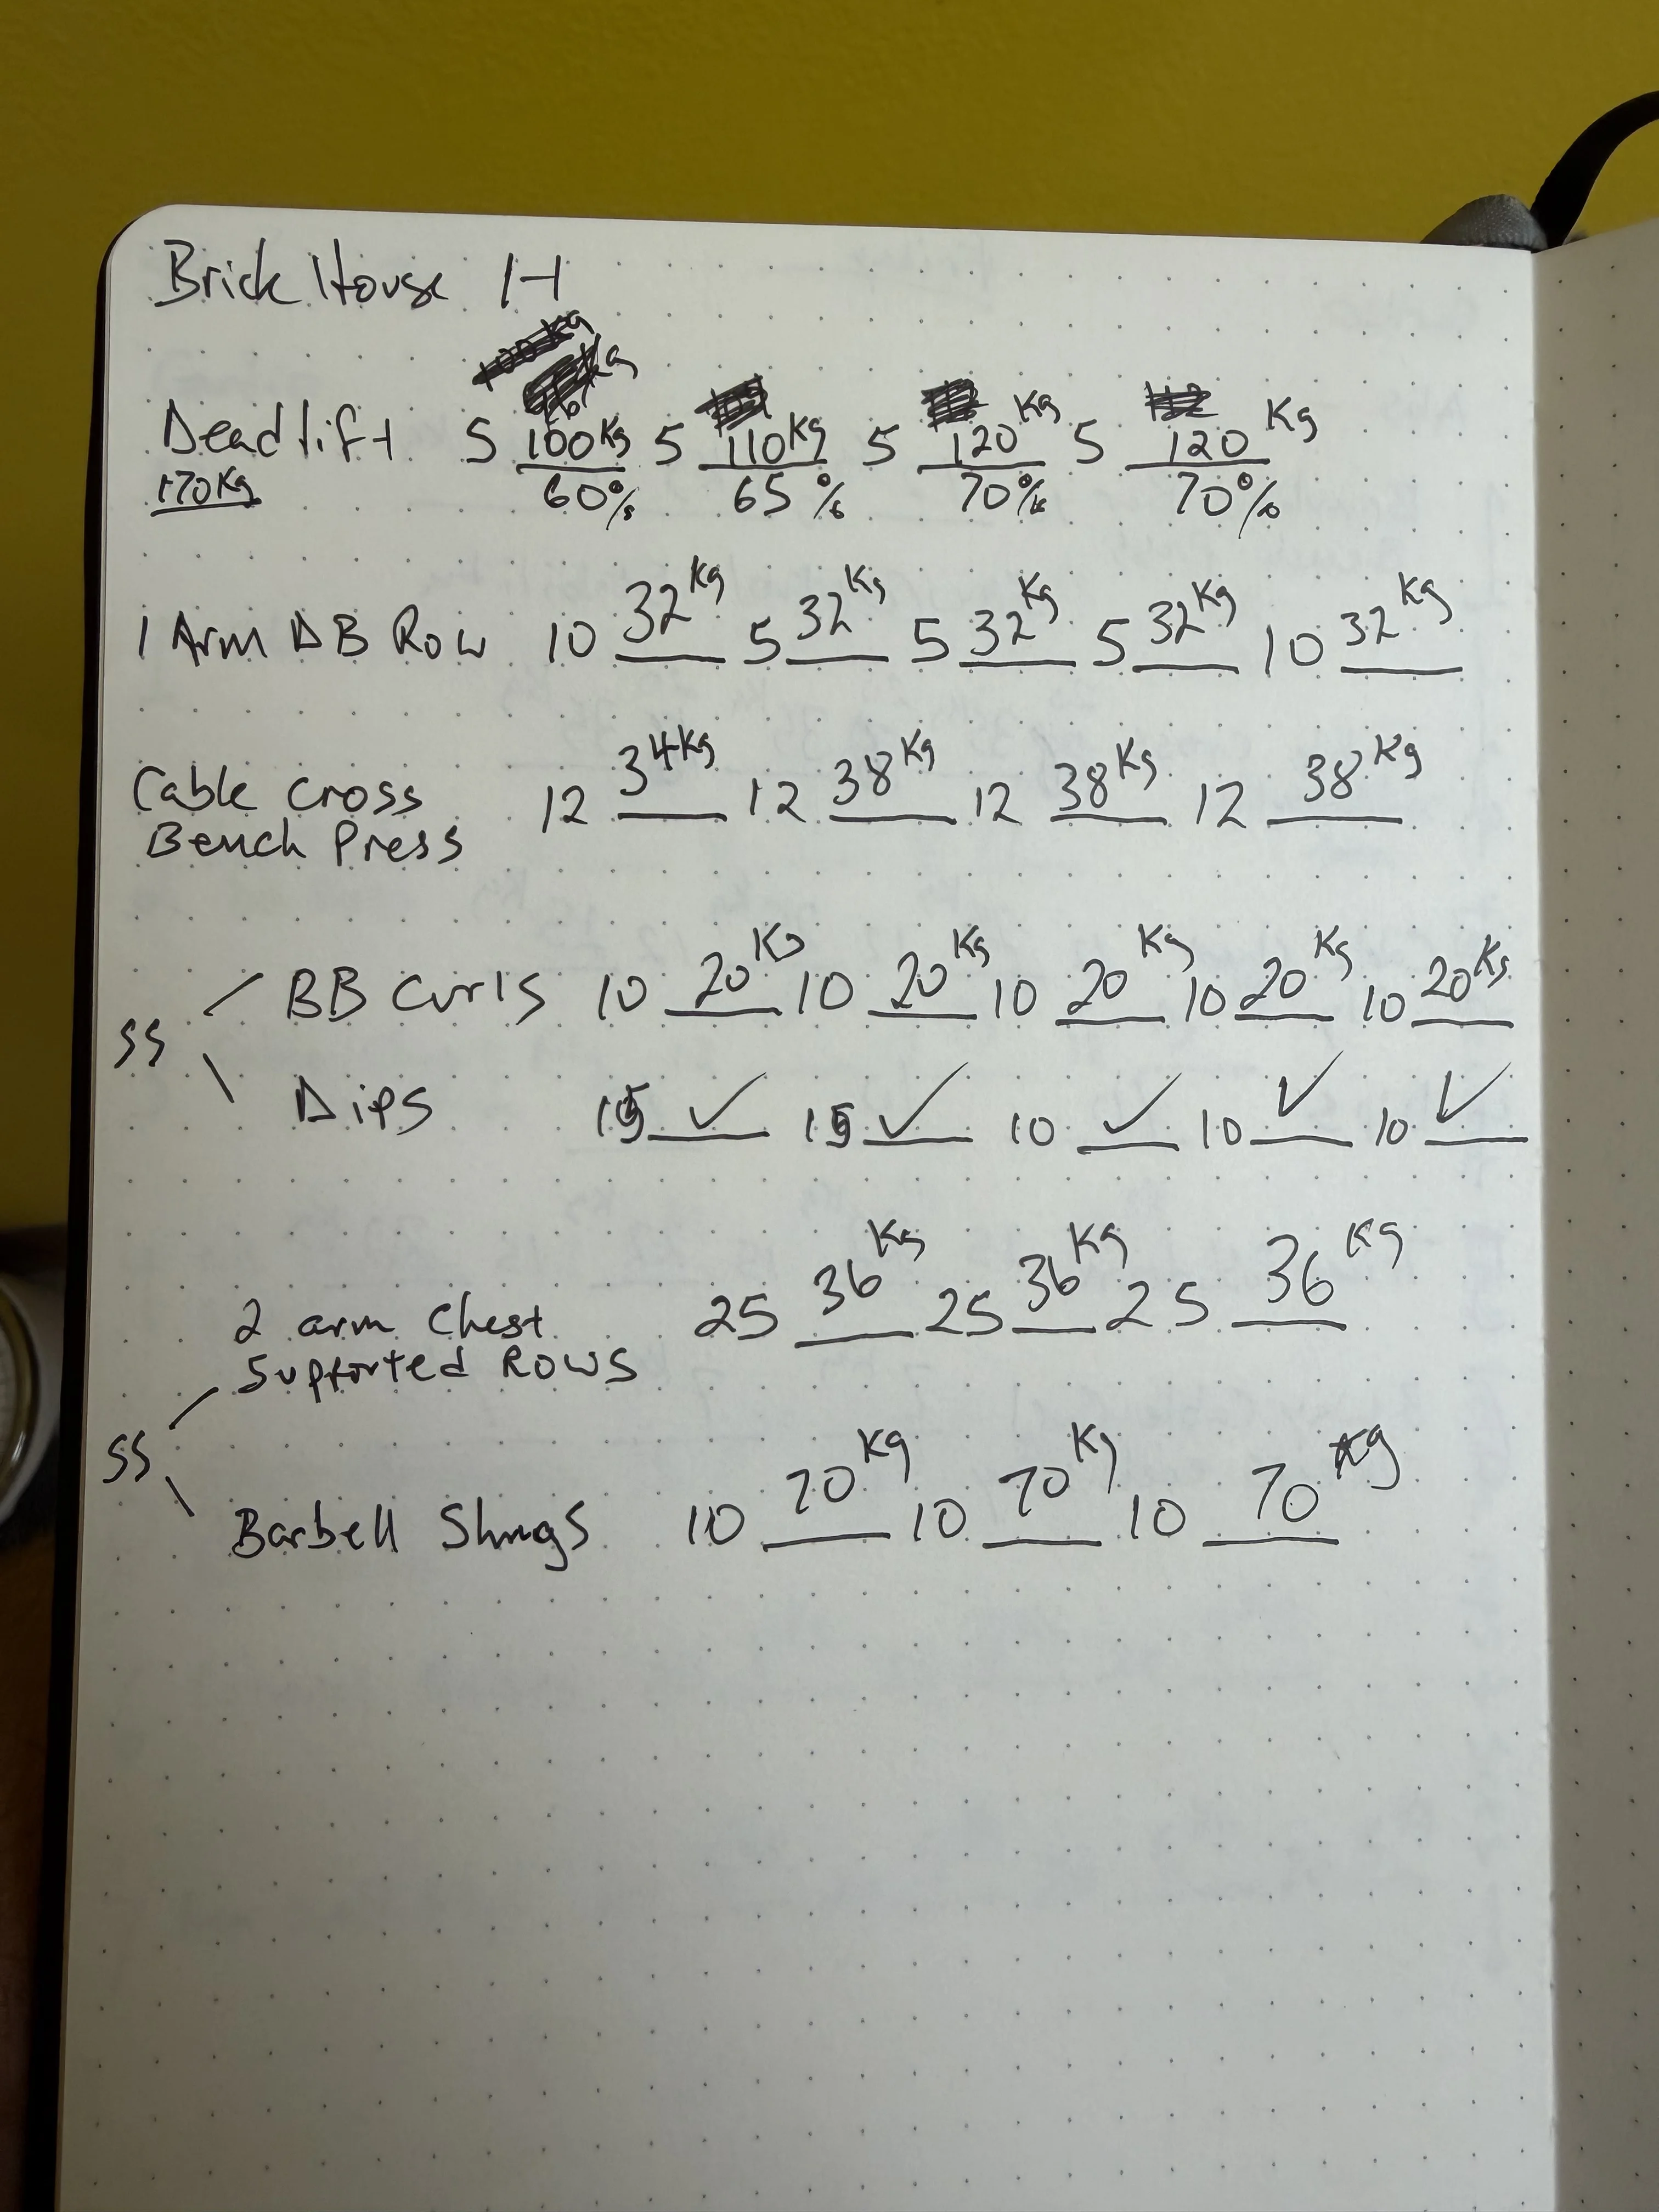 Brick House 1-1
Deadlift 5 100Kg 5 110Kg 5 120Kg 5 120 Kg
170Kg 60% 65% 70% 70%
1 Arm DB Row 10 32Kg 5 32Kg 5 32Kg 5 32Kg 10 32Kg
Cable Cross 12 34Kg 12 38Kg 12 38Kg 12 38Kg
Bench Press
BB Curls 10 20Kg 10 20Kg 10 20Kg 10 20Kg 10 20Kg
SS
Dips 15 ✓ 15 ✓ 10 ✓ 10 ✓ 10 ✓
2 arm Chest 25 36Kg 25 36Kg 25 36Kg
Supported Rows
SS
Barbell Shrugs 10 70Kg 10 70Kg 10 70Kg